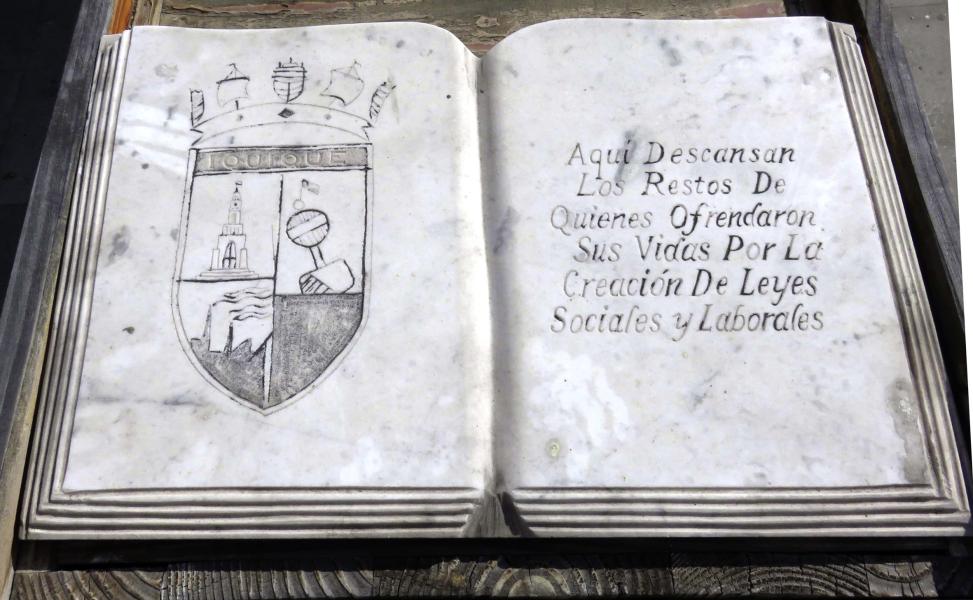 IQUIQUE
Aquí Descansan
Los Restos De
Quienes Ofrendaron
Sus Vidas Por La
Creación De Leyes
Sociales y Laborales